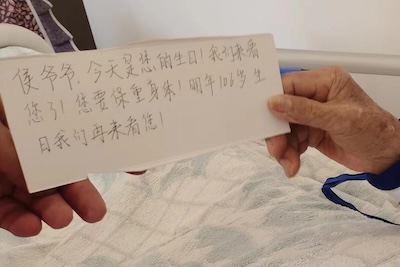 侯爷爷,今天是您的生日!我们来看
您了!您要保重身体!明年106岁生
日我们再来看您!